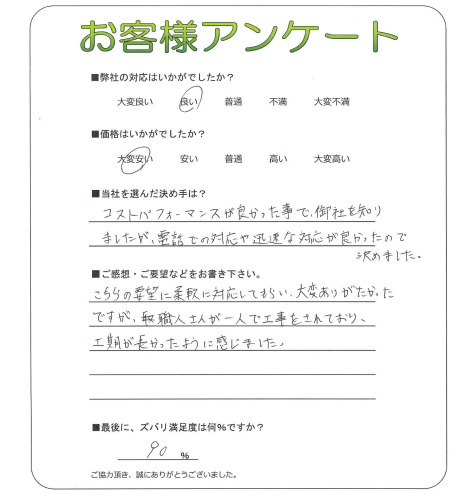 お客様アンケート
■弊社の対応はいかがでしたか？
大変良い 良い 普通 不満 大変不満
■価格はいかがでしたか？
大変安い 安い 普通 高い 大変高い
■当社を選んだ決め手は？
コストパフォーマンスが良かった事で、御社を知り
ましたが、電話での対応や迅速な対応が良かったので
決めました。
■ご感想・ご要望などをお書き下さい。
こちらの要望に柔軟に対応してもらい、大変ありがたかった
ですが、職人さんが一人で工事をされており、
工期が長かったように感じました。
■最後に、ズバリ満足度は何％ですか？
90 %
ご協力頂き、誠にありがとうございました。